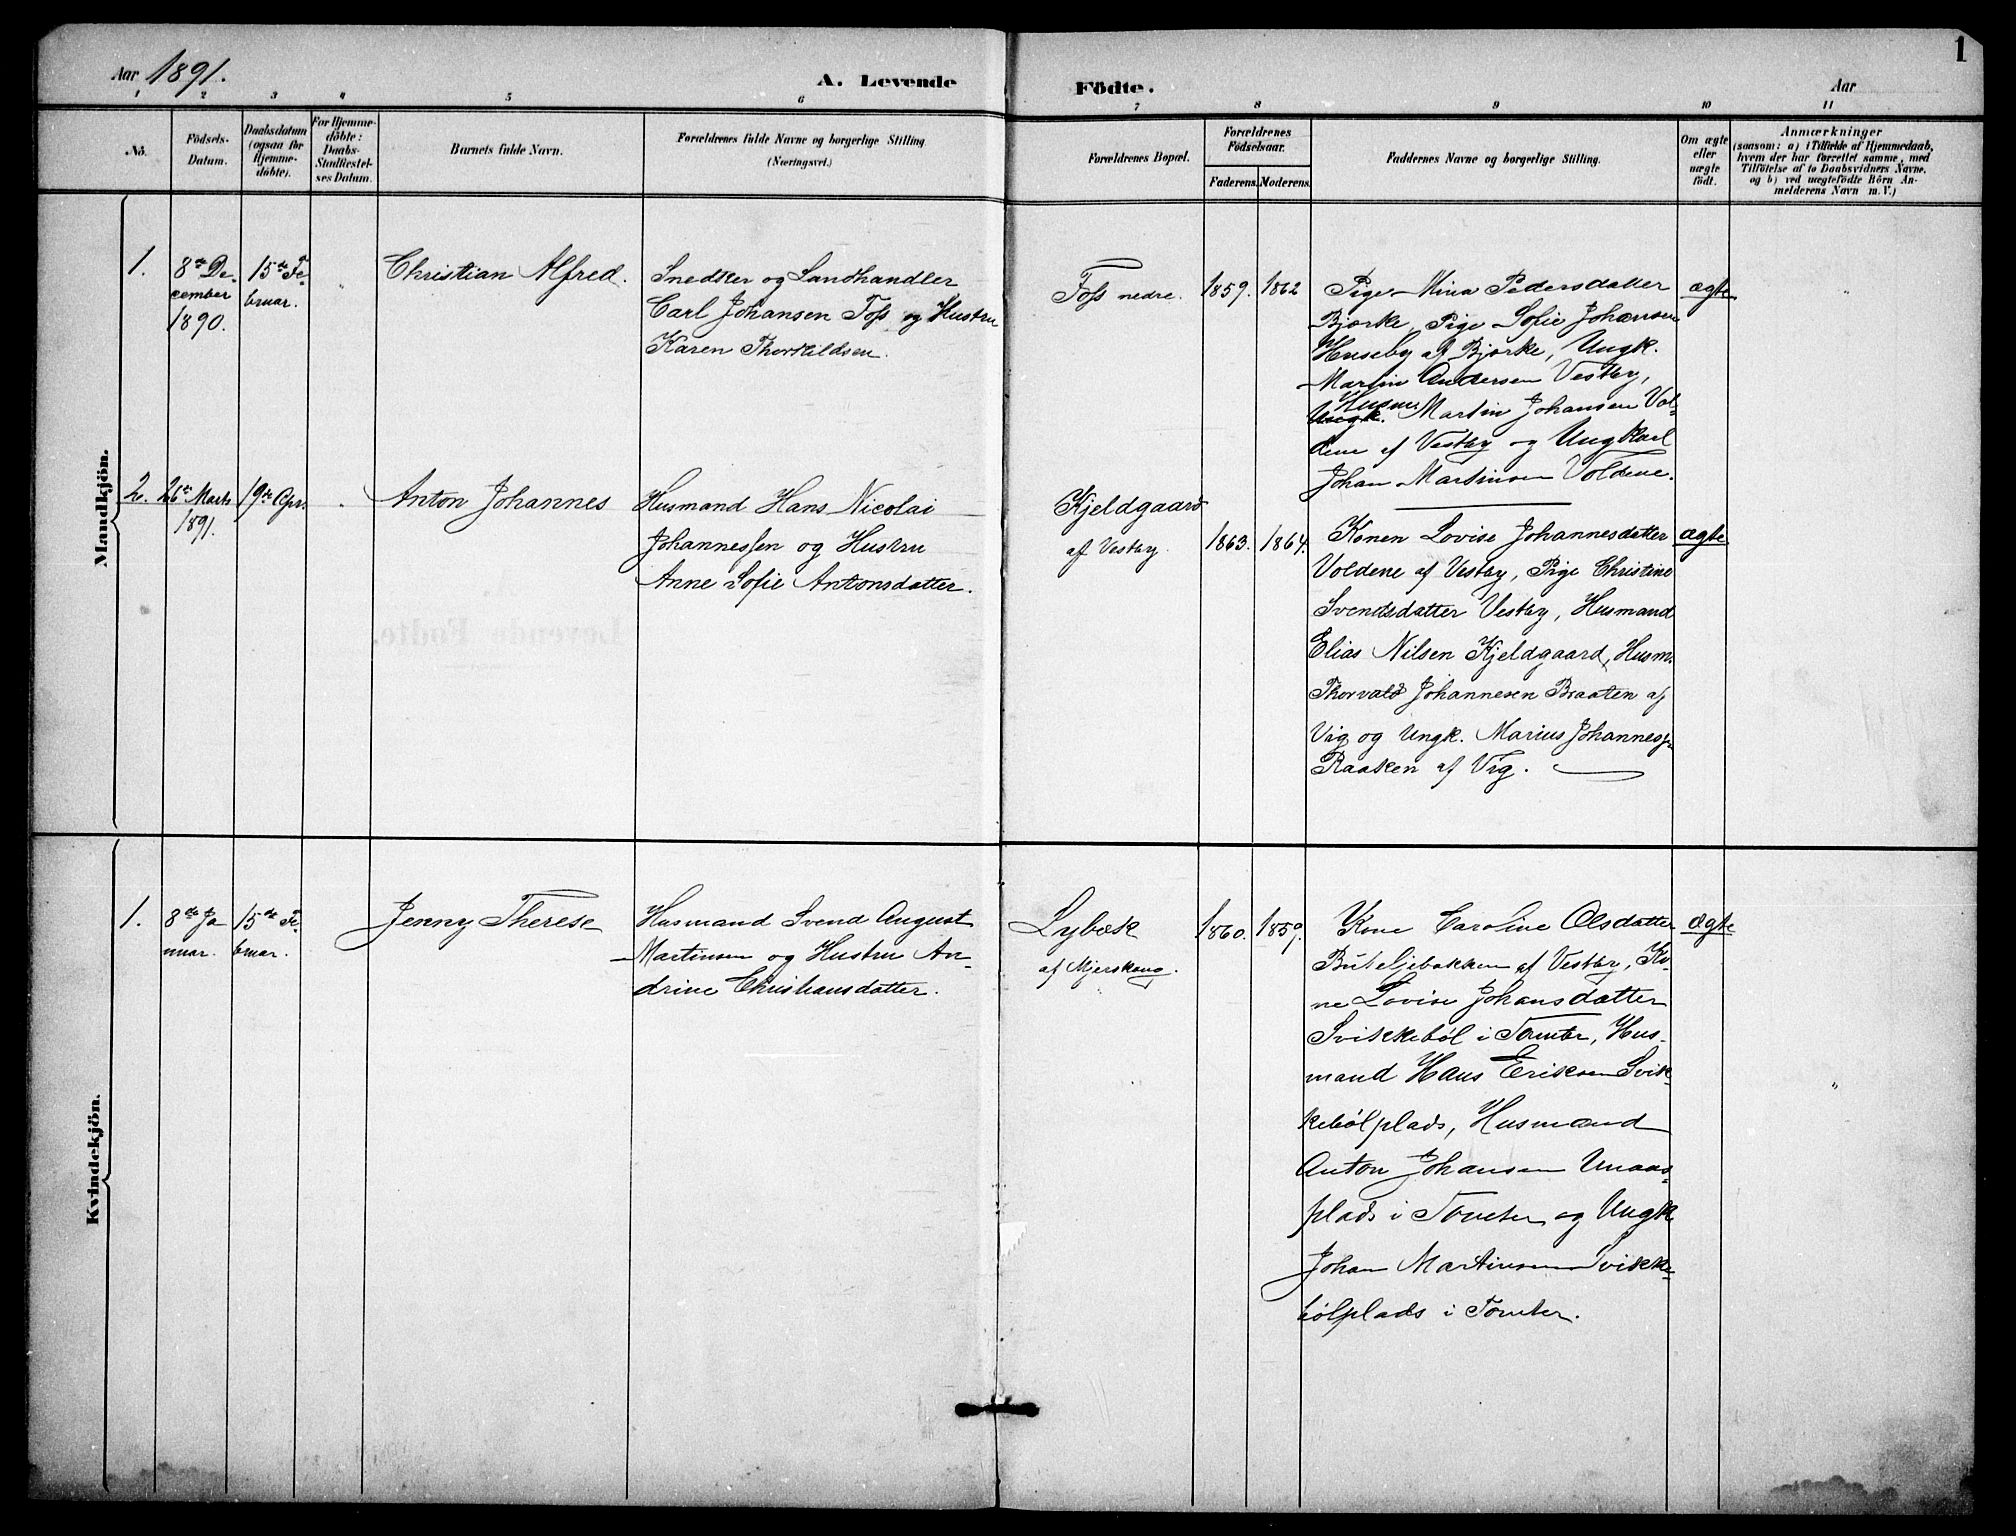 1
Aar 1891.
A. Levende
Födte.
Aar
1 2 3 4 5 6 7 8 9 10 11
No.
Födsels-
Datum.
Daabsdatum
(ogsaa for
Hjemme-
döbte).
For Hjemme-
döbte:
Daabs-
Stadfæstel-
ses Datum.
Barnets fulde Navn.
Forældrenes fulde Navne og borgerlige Stilling
(Næringsvei.)
Forældrenes Bopæl.
Forældrenes
Födselsaar.
Faderens.
Moderens.
Faddernes Navne og borgerlige Stilling.
Om ægte
eller
uægte
födt.
Anmærkninger
(saasom: a) i Tilfælde af Hjemmedaab,
hvem der har forrettet samme, med
Tilföielse af to Daabsvidners Navne,
og b) ved uægtefödte Börn An-
melderens Navn m. V.)
Mandkjön.
1.
8de De-
cember
1890.
15de Fe-
bruar.
Christian Alfred.
Snedker og Landhandler
Carl Johansen Foss og Hustru
Karen Thorkildsen.
Foss nedre.
1859.
1862
Pige Mina Pedersdatter
Bjørke, Pige Sofie Johansen
Huseby af Bjørke, Ungk.
Martin Andersen Vestby,
Husm.
Ungk. Martin Johansen Vol-
dene af Vestby og Ungkarl
Johan Martinsen Voldene.
ægte
2.
26de Marts
1891.
19de Apr.
Anton Johannes
Husmand Hans Nicolai
Johannessen og Hustru
Anne Sofie Antonsdatter.
Kjeldgaard
af Vestby.
1863.
1864.
Konen Lovise Johannesdatter
Voldene af Vestby, Pige Christine
Svendsdatter Vestby, Husmand
Elias Nilsen Kjeldgaard, Husm.
Thorvald Johannesen Braaten af
Vig og Ungk. Marius Johannessen
Raaken af Vig.
ægte
Kvindekjön.
1.
8de Ja
nuar.
15de Fe-
bruar.
Jenny Therese
Husmand Svend August
Martinsen og Hustru An-
drine Christiansdatter.
Lybæk
af Mjerskaug.
1860.
1859.
Kone Caroline Olsdatter
af Vestby, Ko-
ne Lovise Johansdatter
Svikkebøl i Tomter, Hus-
mand Hans Eriksen Svik-
kebølplads, Husmand
Anton Johansen Unaas-
plads i Tomter og Ungk
Johan Martinsen Svikke-
bølplads i Tomter.
ægte